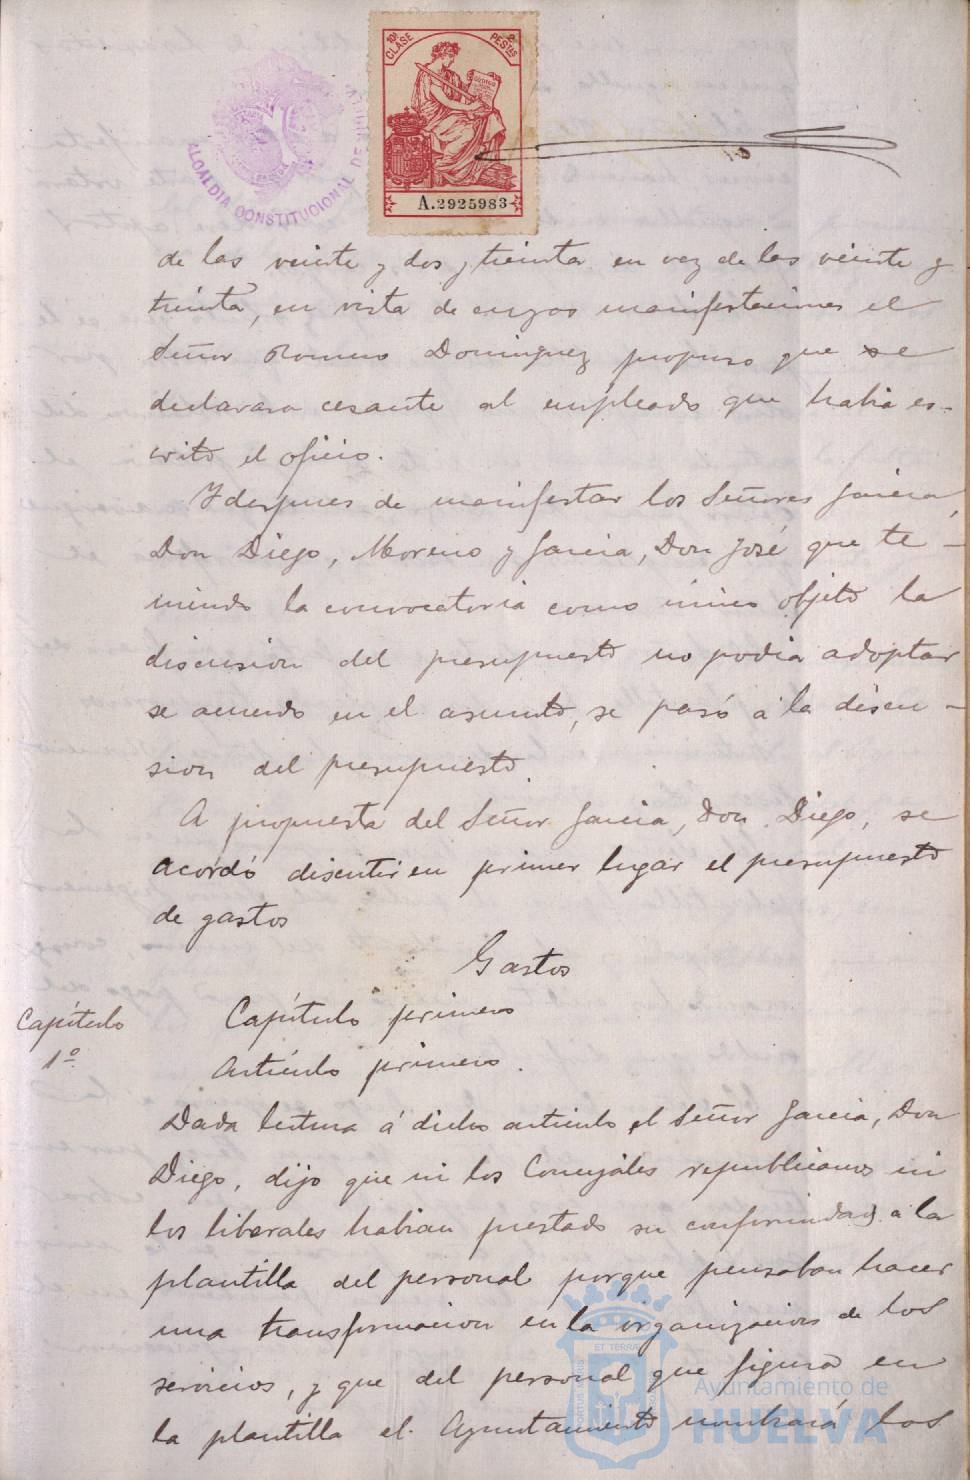 10ª CLASE
2 PESTAS
A.2925983
ALCALDIA CONSTITUCIONAL DE
de las veinte y dos y treinta en vez de las veinte y
treinta, en vista de cuyas manifestaciones el
Señor Romero Dominguez propuso que se
declarara cesante al empleado que habia es-
crito el oficio.
Y despues de manifestar los Señores Garcia,
Don Diego, Moreno y Garcia, Don José que te-
niendo la convocatoria como único objeto la
discusion del presupuesto no podia adoptar
se acuerdo en el asunto, se pasó á la discu-
sion del presupuesto.
A propuesta del Señor Garcia, Don Diego, se
acordó discutir en primer lugar el presupuesto
de gastos
Gastos
Capítulo
1º
Capítulo primero
Artículo primero.
Dada lectura á dicho articulo el Señor Garcia, Don
Diego, dijo que ni los Concejales republicanos ni
los liberales habian prestado su conformidad a la
plantilla del personal porque pensaban hacer
una transformacion en la organizacion de los
servicios, y que del personal que figura en
la plantilla el Ayuntamiento nombrará los
ET TERRA
Ayuntamiento de
HUELVA